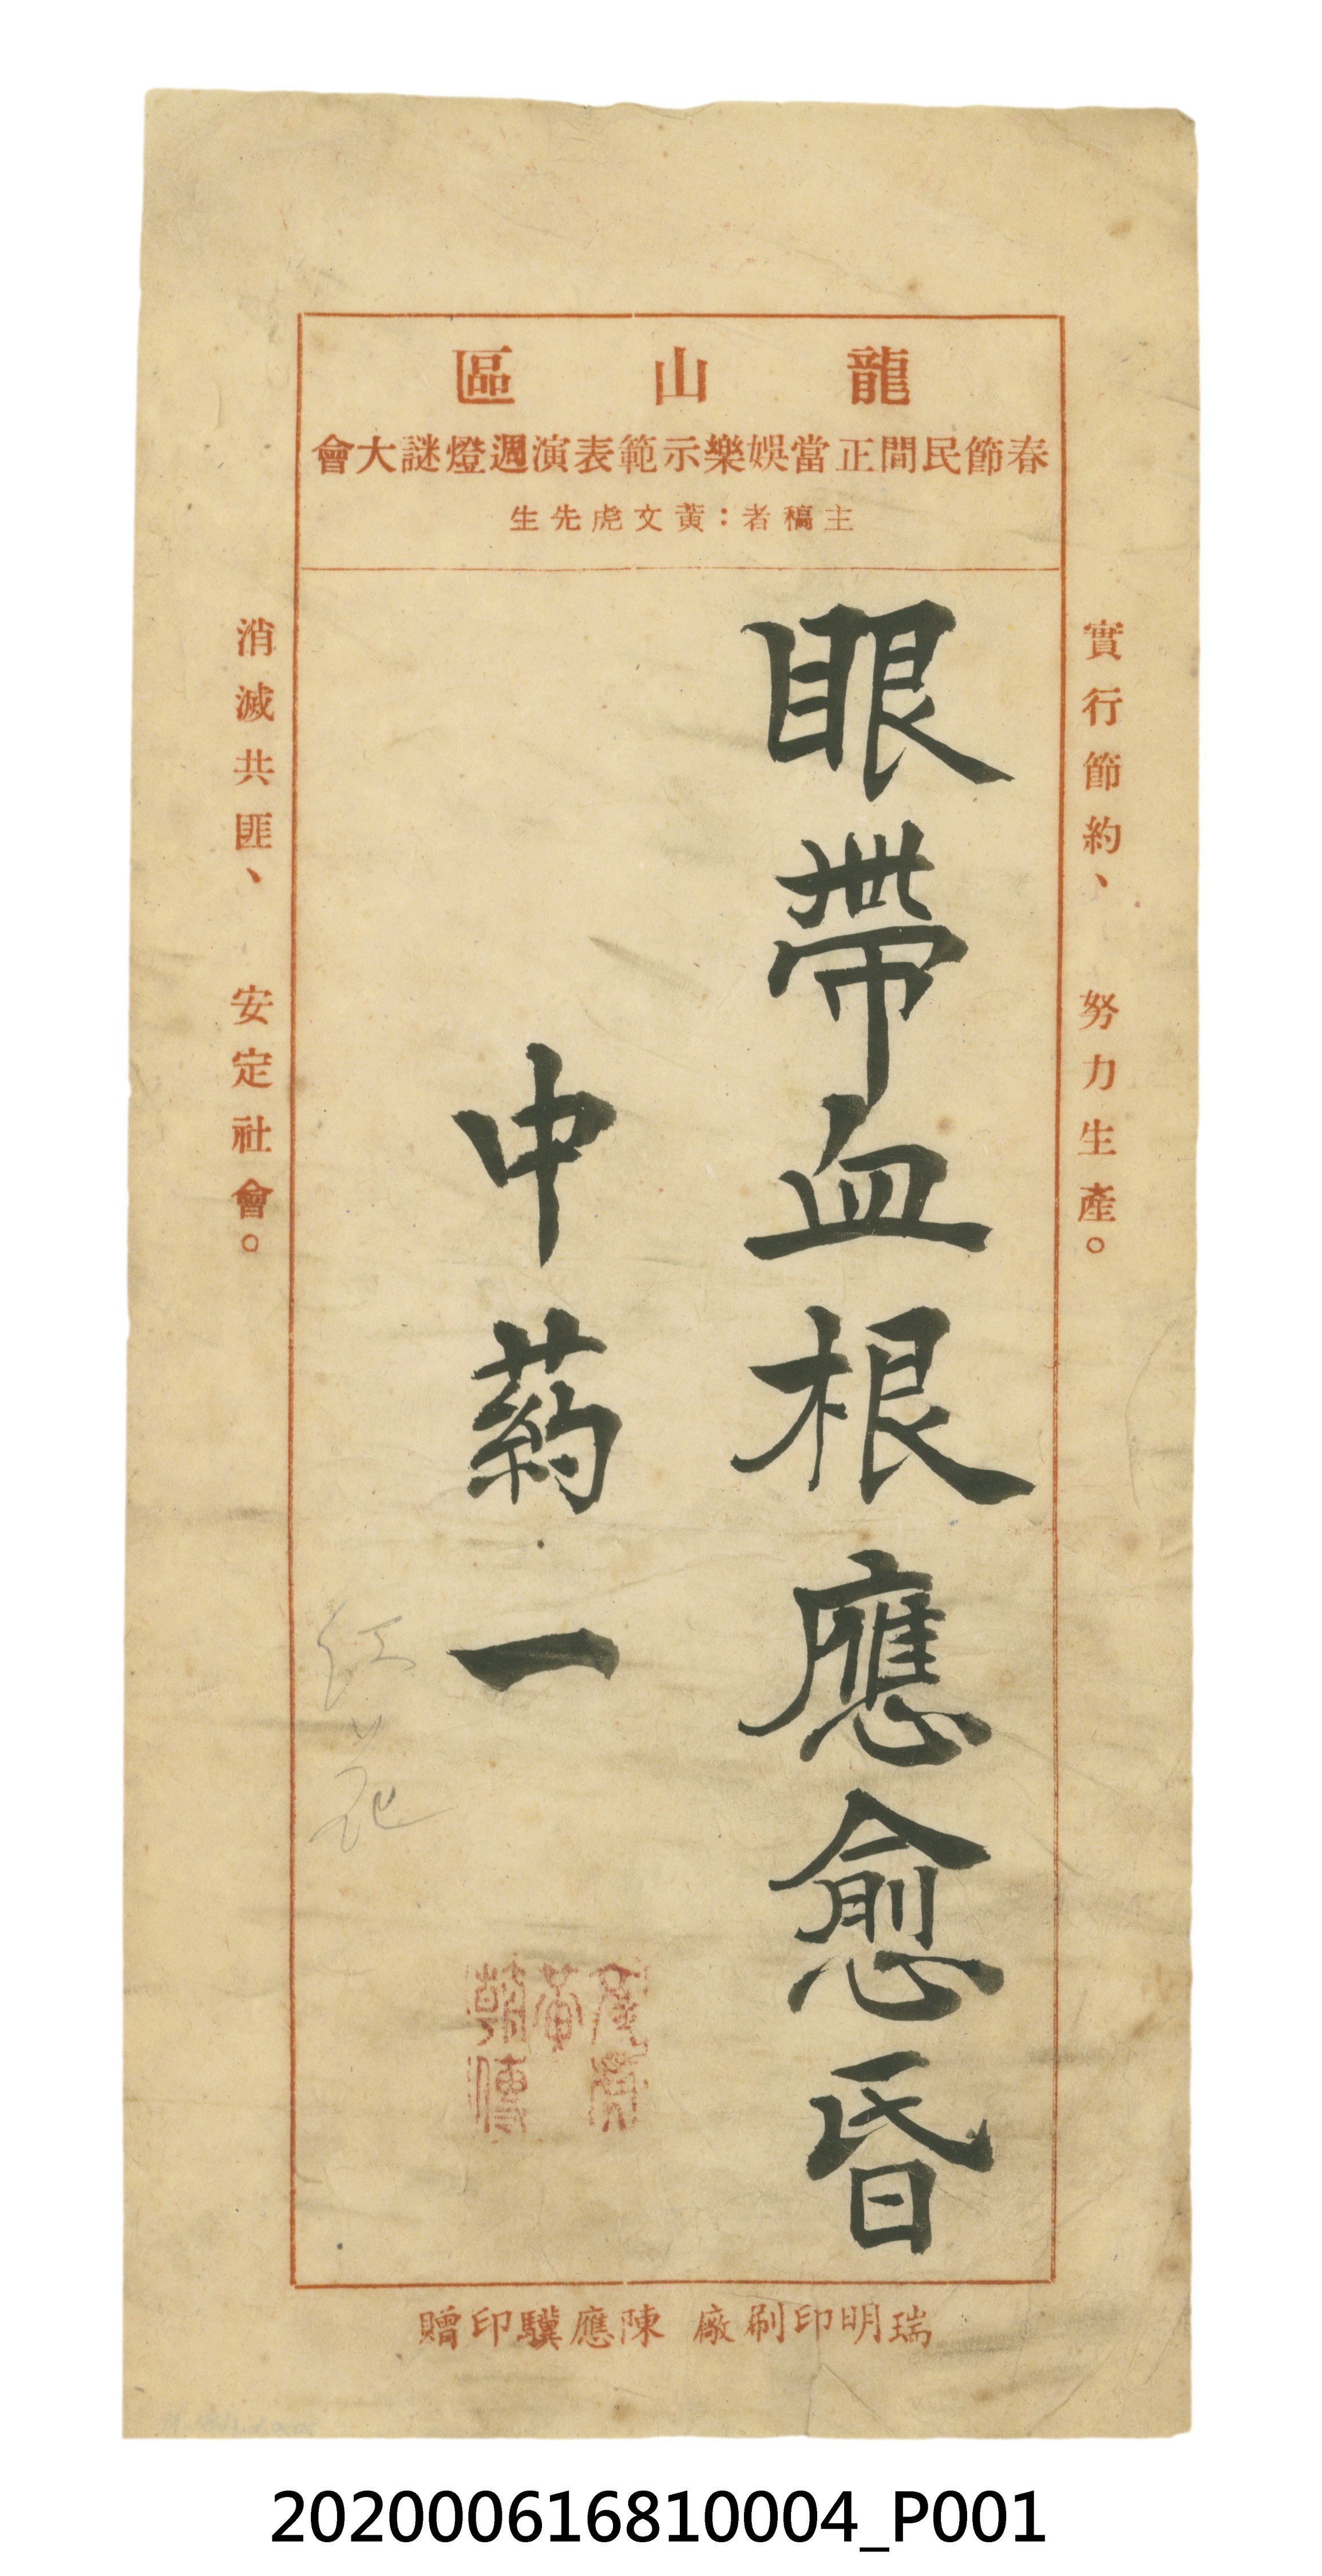 龍山區
春節民間正當娛樂示範表演週燈謎大會
主稿者：黃文虎先生
實行節約、努力生產。
眼帶血根應愈昏
中葯一
紅花
消滅共匪、安定社會。
瑞明印刷廠 陳應驥印贈
202000616810004_P001